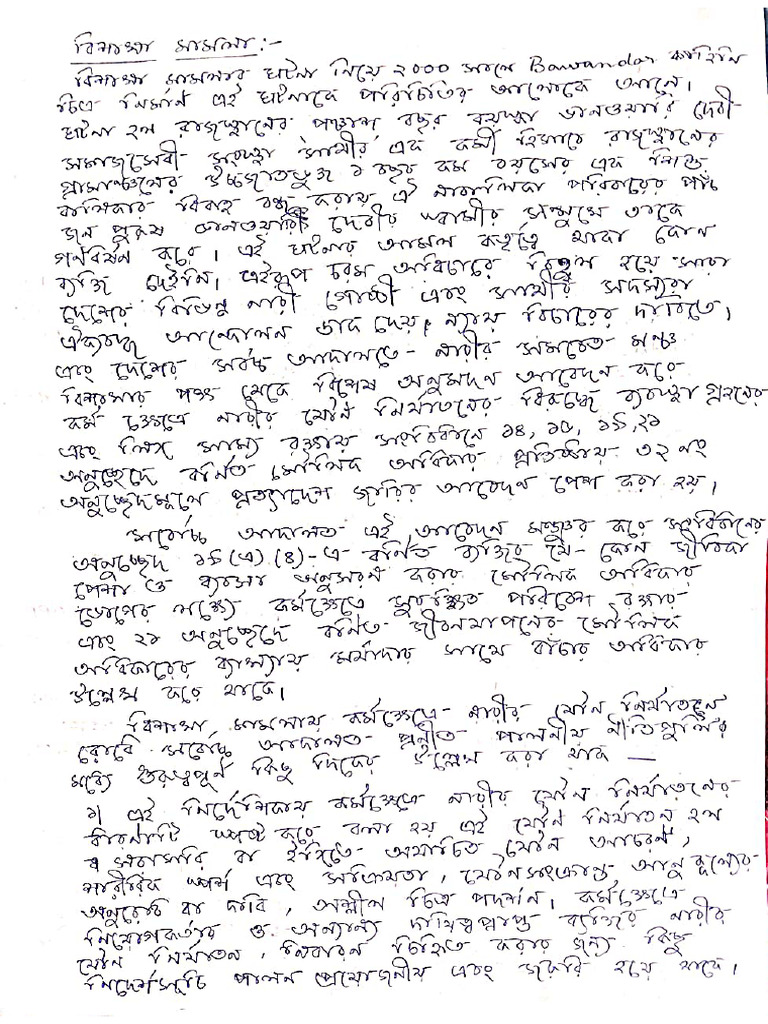 বিশাখা মামলা :-
বিশাখা মামলার ঘটনা নিয়ে ২০০০ সালে Bawandar কাহিনি
চিত্র নির্মান এই ঘটনাকে পরিচিতির আলোকে আনে।
ঘটনা হল রাজস্থানের পঞ্চাশ বছর বয়স্কা ভানওয়ারি দেবী
সমাজসেবী সংস্থা সাথীর এক কর্মী হিসাবে রাজস্থানের
গ্রামাঞ্চলের উচ্চজাতভুক্ত ১ বছর কম বয়সের এক শিশু
বালিকার বিবাহ বন্ধ করায় ঐ নাবালিকা পরিবারের পাঁচ
জন পুরুষ ভানওয়ারী দেবীর স্বামীর সম্মুখে তাকে
গণধর্ষন করে। এই ঘটনার আসল কর্তৃত্বে থাকা কোন
ব্যক্তি দেইনি। এইরূপ চরম অবিচারে বিক্ষুব্ধ হয়ে সারা
দেশের বিভিন্ন নারী গোষ্ঠী এবং সাথীর সদস্যরা
ঐক্যবদ্ধ আন্দোলন ডাক দেয়, ন্যায় বিচারের দাবিতে।
এবং দেশের সর্বচ্চ আদালতে নারীর সমবেত মঞ্চ
বিশাখার পক্ষ থেকে বিশেষ অনুমদন আবেদন করে
কর্ম ক্ষেত্রে নারীর যৌন নির্যাতনের বিরুদ্ধে ব্যবস্থা গ্রহনের
এবং লিঙ্গ সাম্য রক্ষায় সংবিধানে ১৪, ১৫, ১৯, ২১
অনুচ্ছেদে বর্নিত মৌলিক অধিকার প্রতিষ্ঠায় ৩২ নং
অনুচ্ছেদমূলে প্রত্যাদেশ জারির আবেদন পেশ করা হয়।
সর্বোচ্চ আদালত এই আবেদন মঞ্জুর করে সংবিধানের
অনুচ্ছেদ ১৯ (এ) (৪)-এ বর্নিত ব্যক্তির যে-কোন জীবিকা
পেশা ও ব্যবসা অনুসরণ করার মৌলিক অধিকার
ভোগের লক্ষ্যে কর্মক্ষেত্রে সুরক্ষিত পরিবেশ রক্ষার
এবং ২১ অনুচ্ছেদে বর্নিত জীবনযাপনের মৌলিক
অধিকারের ব্যাখ্যায় মর্যাদার সাথে বাঁচার অধিকার
উল্লেখ করে থাকে।
বিশাখা মামলায় কর্মক্ষেত্রে নারীর যৌন নির্যাতন
রোধে সর্বোচ্চ আদালত প্রনীত পালনীয় নীতিগুলির
মধ্যে গুরুত্বপূর্ণ কিছু দিকের উল্লেখ করা যাক —
১) এই নির্দেশিকায় কর্মক্ষেত্রে নারীর যৌন নির্যাতনের
ধারনাটি স্পষ্ট করে বলা হয় এই যৌন নির্যাতন হল
সরাসরি বা ইঙ্গিতে অযাচিত যৌন আচরণ,
শারীরিক স্পর্শ এবং সক্রিয়তা, যৌনসংক্রান্ত আনুকূল্যের
অনুরোধ বা দাবি, অশ্লীল চিত্র পদর্শন। কর্মক্ষেত্রে
নিয়োগকর্তার ও অন্যান্য দায়িত্বপ্রাপ্ত ব্যক্তির নারীর
যৌন নির্যাতন, নিবারন চিহ্নিত করার জন্য কিছু
নিদের্শসূচি পালন প্রয়োজনীয় এবং জরুরি হয়ে থাকে।